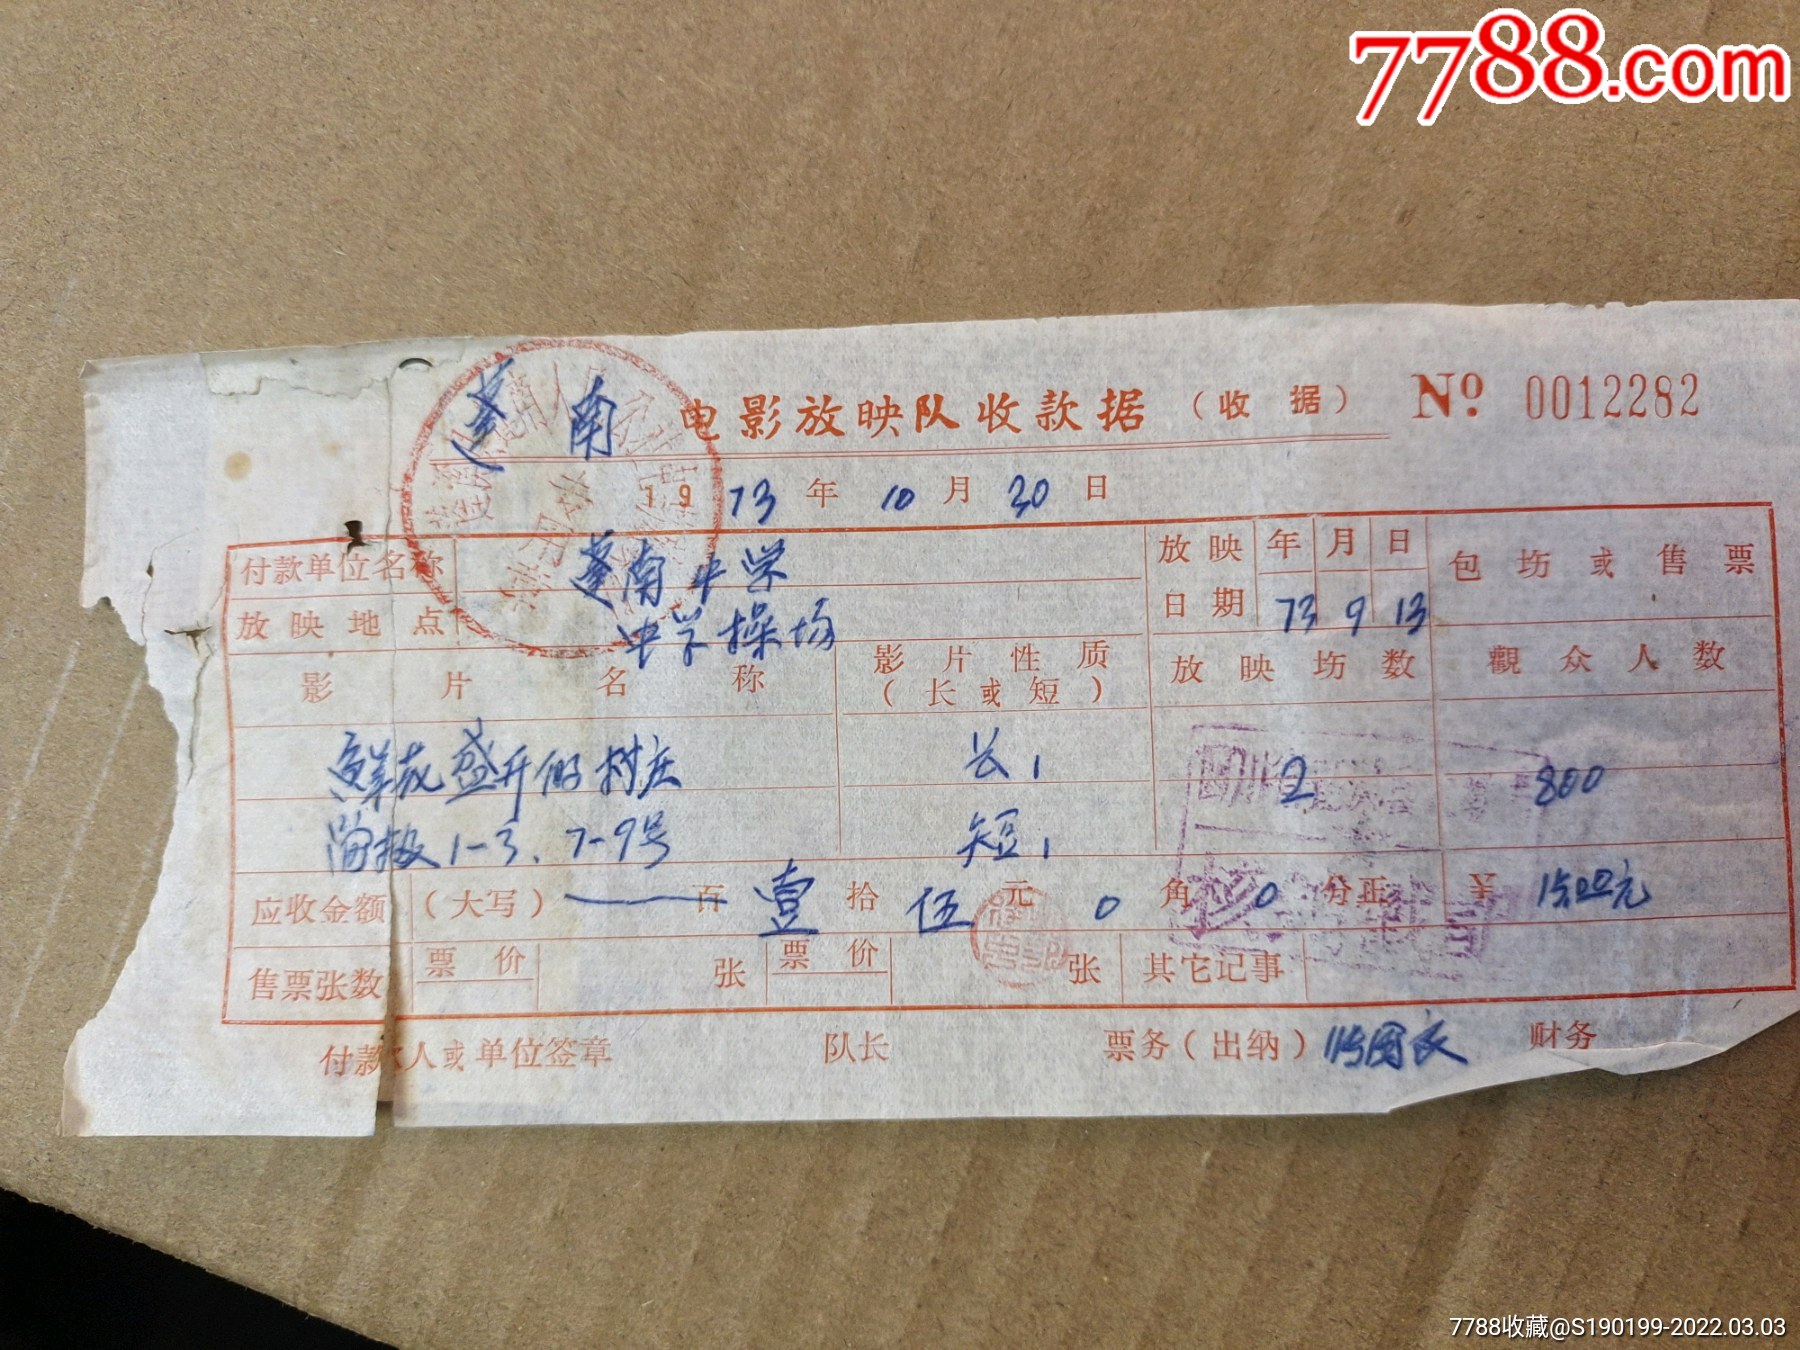 7788.com
蓬南 电影放映队收款据 (收据) № 0012282
1973年10月30日
付款单位名称 蓬南中学 放映日期 年 月 日 包场或售票
放映地点 中学操场 73 9 13
影片名称 影片性质(长或短) 放映场数 觀众人数
鲜花盛开的村庄 长1 2 800
简报1-3、7-9号 短1
应收金额 (大写) 百壹拾伍元0角0分正 ¥ 15.00元
售票张数 票价 张 票价 张 其它记事
付款人或单位签章 队长 票务(出纳) 财务
7788收藏@S190199-2022.03.03